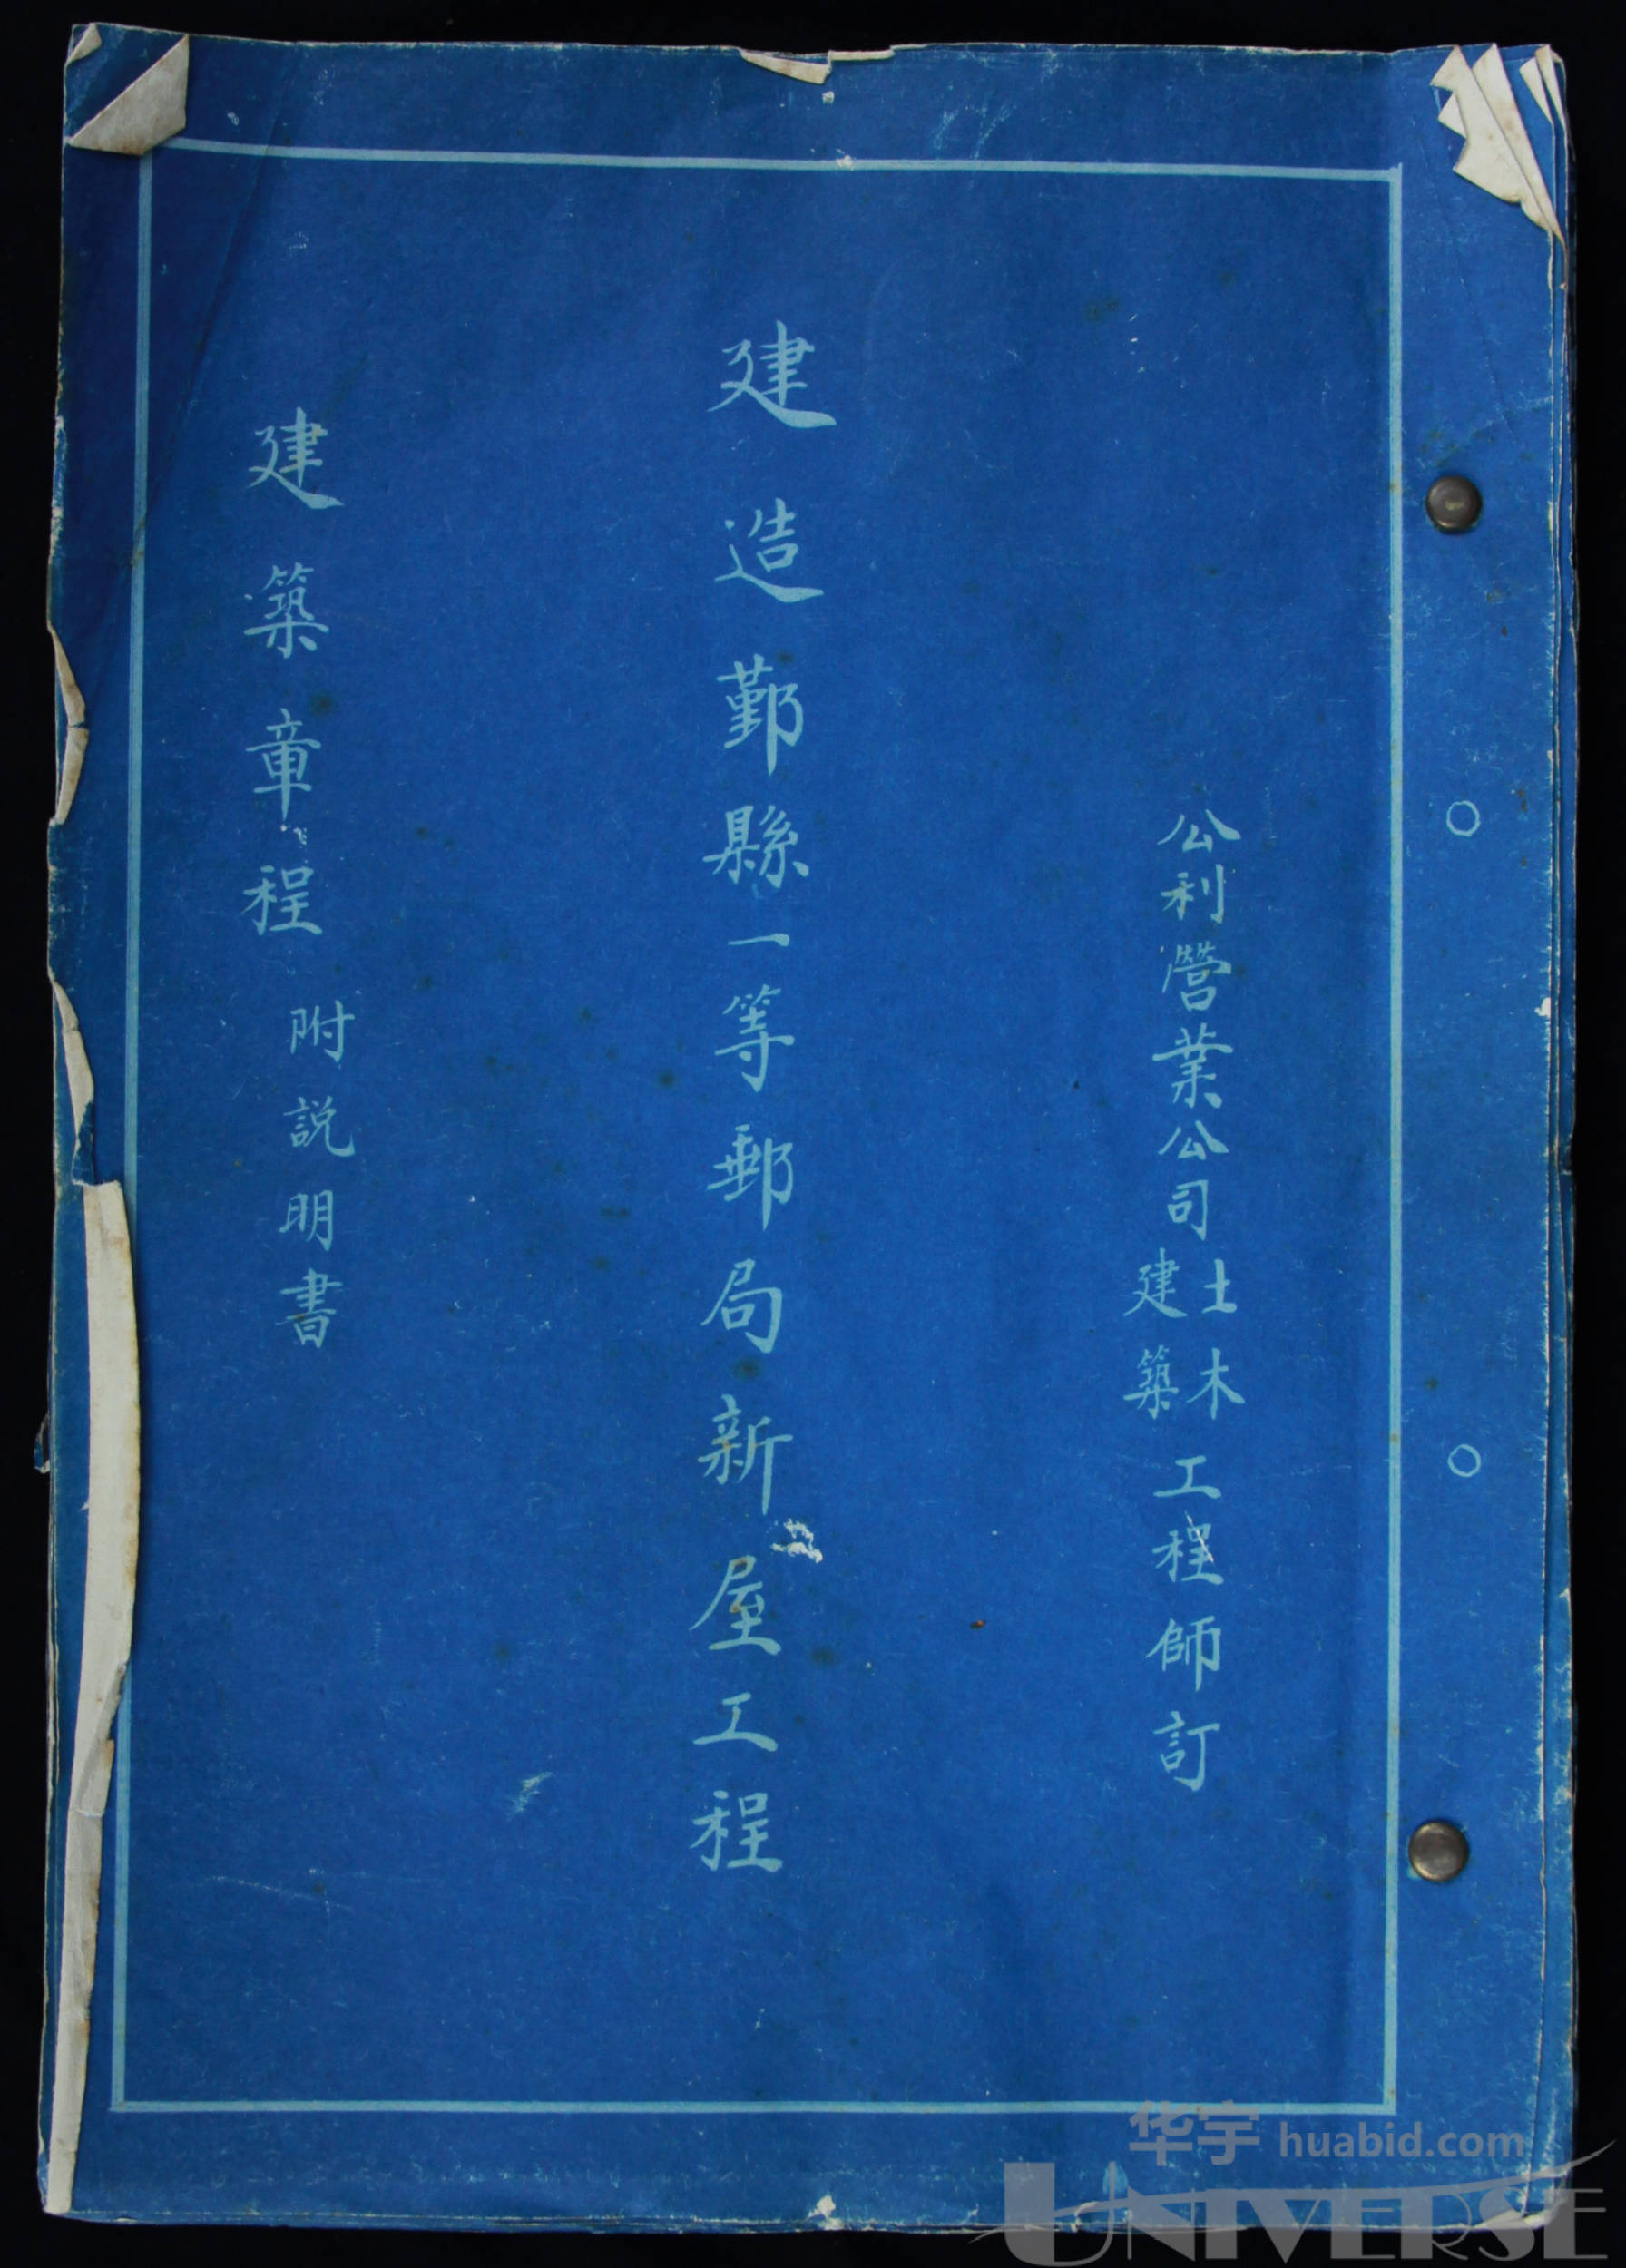 公利營業公司土木建築工程師訂
建造鄞縣一等郵局新屋工程
建築章程附說明書
华宇 huabid.com
UNIVERSE